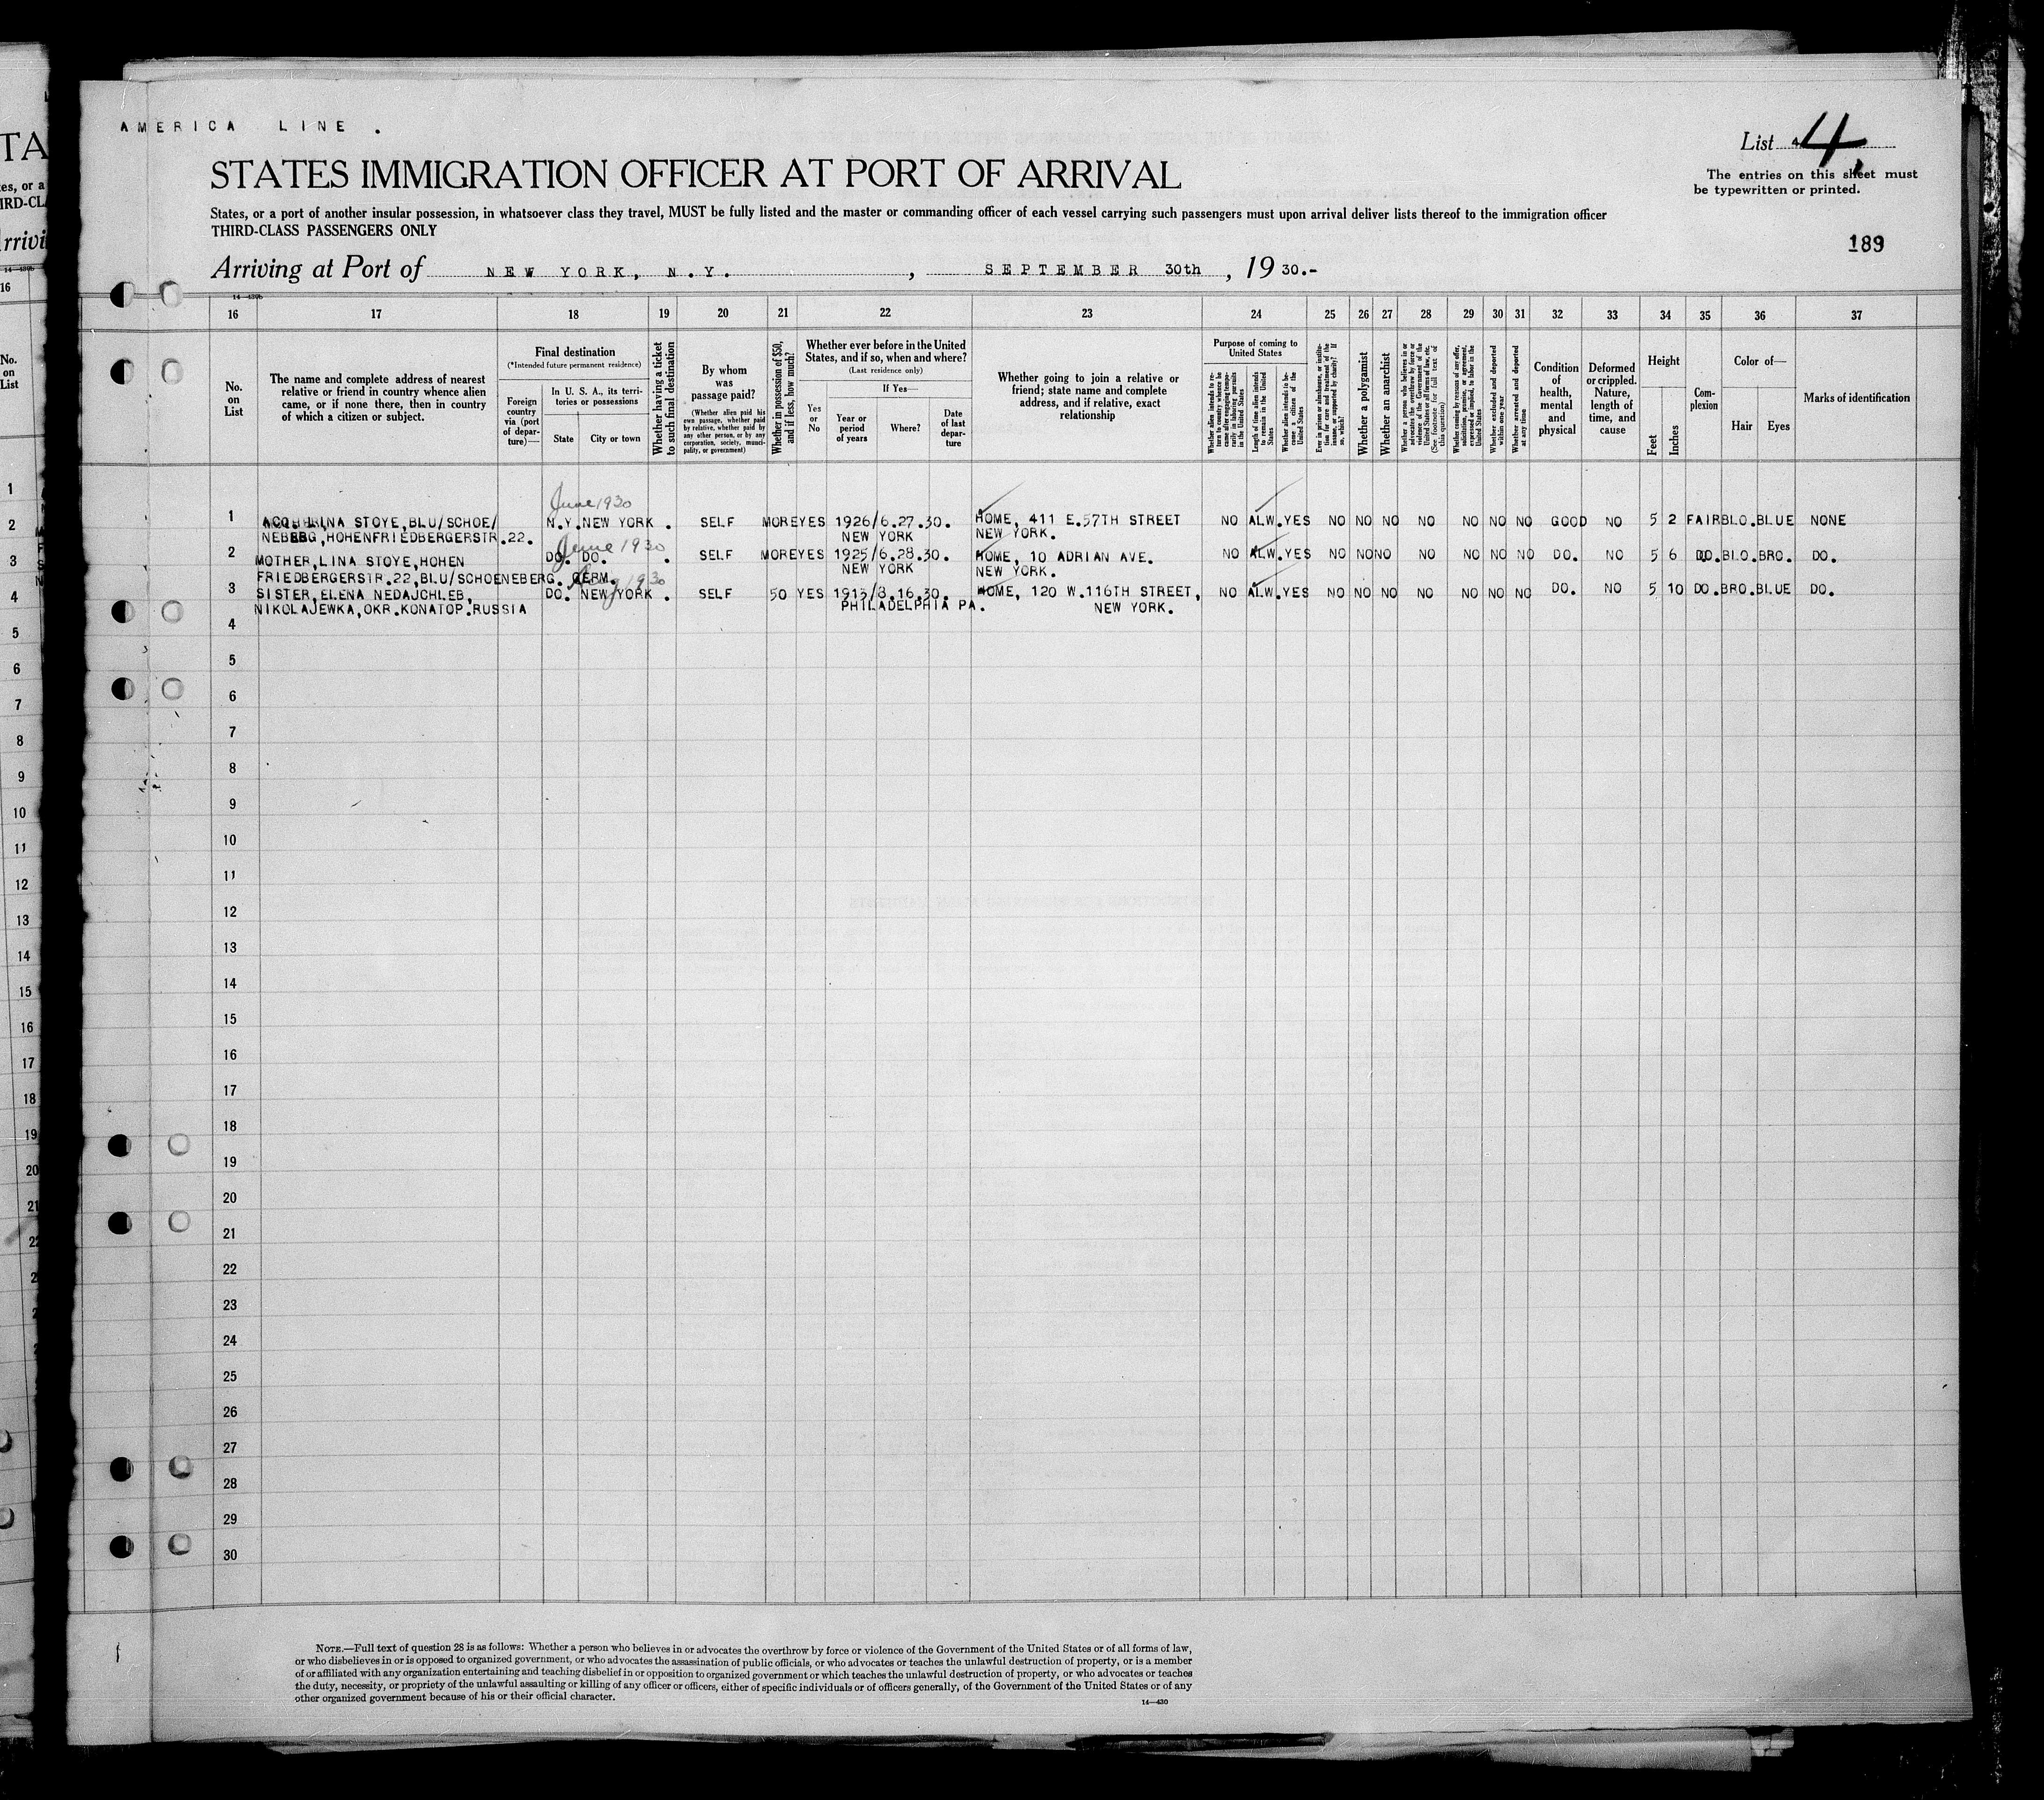 AMERICA LINE .
List 4
STATES IMMIGRATION OFFICER AT PORT OF ARRIVAL
The entries on this sheet must
be typewritten or printed.
States, or a port of another insular possession, in whatsoever class they travel, MUST be fully listed and the master or commanding officer of each vessel carrying such passengers must upon arrival deliver lists thereof to the immigration officer
THIRD-CLASS PASSENGERS ONLY
189
Arriving at Port of NEW YORK, N.Y. , SEPTEMBER 30th , 19 30.-
16 17 18 19 20 21 22 23 24 25 26 27 28 29 30 31 32 33 34 35 36 37
No. on List
The name and complete address of nearest
relative or friend in country whence alien
came, or if none there, then in country
of which a citizen or subject.
Final destination
(*Intended future permanent residence)
Foreign country via (port of departure)—
In U. S. A., its territories or possessions
State City or town
Whether having a ticket to such final destination
By whom was passage paid?
(Whether alien paid his own passage, whether paid by relative, whether paid by any other person, or by any corporation, society, municipality, or government)
Whether in possession of $50, and if less, how much?
Whether ever before in the United
States, and if so, when and where?
(Last residence only)
Yes or No
If Yes—
Year or period of years
Where?
Date of last departure
Whether going to join a relative or
friend; state name and complete
address, and if relative, exact
relationship
Purpose of coming to
United States
Whether alien intends to return to country whence he came after engaging temporarily in laboring pursuits in the United States
Length of time alien intends to remain in the United States
Whether alien intends to become a citizen of the United States
Ever in prison or almshouse, or institution for care and treatment of the insane, or supported by charity? If so, which?
Whether a polygamist
Whether an anarchist
Whether a person who believes in or advocates the overthrow by force or violence of the Government of the United States or all forms of law, etc. (See footnote for full text of this question)
Whether coming by reasons of any offer, solicitation, promise, or agreement, expressed or implied, to labor in the United States
Whether excluded and deported within one year
Whether arrested and deported at any time
Condition of health, mental and physical
Deformed or crippled. Nature, length of time, and cause
Height
Feet Inches
Complexion
Color of—
Hair Eyes
Marks of identification
June 1930
1 STOYE,BLU/SCHOE/ N.Y. NEW YORK . SELF MORE YES 1926/6.27.30. HOME, 411 E.57TH STREET NO ALW. YES NO NO NO NO NO NO NO GOOD NO 5 2 FAIR BLO. BLUE NONE
NEBERG,HOHENFRIEDBERGERSTR.22. NEW YORK NEW YORK.
June 1930
2 MOTHER,LINA STOYE,HOHEN DO. DO. . SELF MORE YES 1925/6.28.30. HOME, 10 ADRIAN AVE. NO ALW. YES NO NO NO NO NO NO NO DO. NO 5 6 DO. BLO. BRO. DO.
FRIEDBERGERSTR.22,BLU/SCHOENEBERG. GERM. NEW YORK NEW YORK.
Aug 1930
3 SISTER,ELENA NEDAJCHLEB, DO. NEW YORK . SELF 50 YES 1913/8.16.30. HOME, 120 W.116TH STREET, NO ALW. YES NO NO NO NO NO NO NO DO. NO 5 10 DO. BRO. BLUE DO.
NIKOLAJEWKA,OKR.KONATOP.RUSSIA PHILADELPHIA PA. NEW YORK.
4
5
6
7
8
9
10
11
12
13
14
15
16
17
18
19
20
21
22
23
24
25
26
27
28
29
30
NOTE.—Full text of question 28 is as follows: Whether a person who believes in or advocates the overthrow by force or violence of the Government of the United States or of all forms of law,
or who disbelieves in or is opposed to organized government, or who advocates the assassination of public officials, or who advocates or teaches the unlawful destruction of property, or is a member
of or affiliated with any organization entertaining and teaching disbelief in or opposition to organized government or which teaches the unlawful destruction of property, or who advocates or teaches
the duty, necessity, or propriety of the unlawful assaulting or killing of any officer or officers, either of specific individuals or of officers generally, of the Government of the United States or of any
other organized government because of his or their official character.
14—430